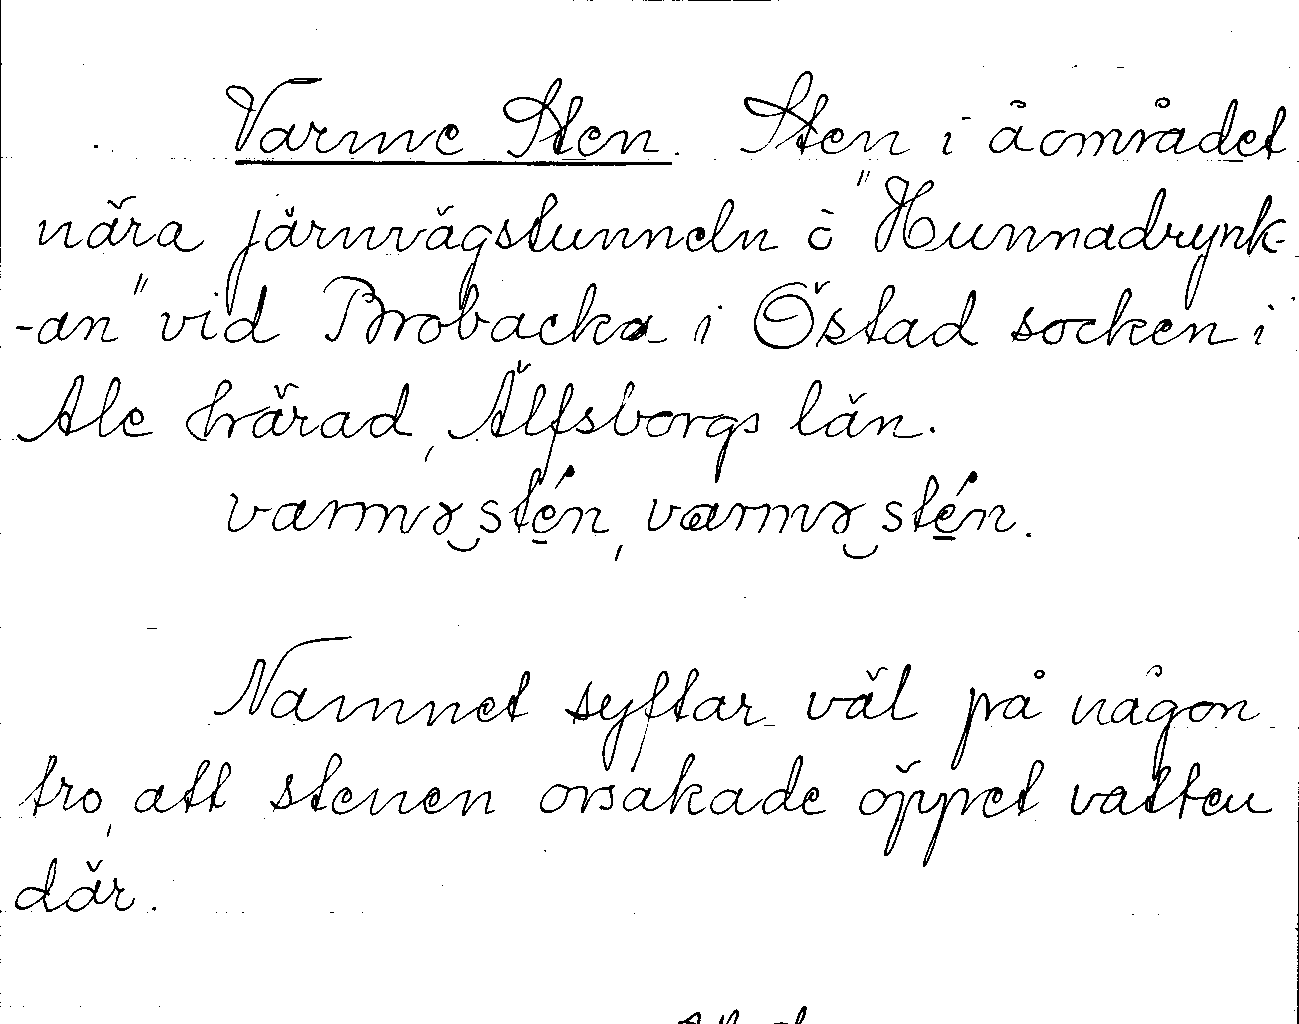 Varme Sten. Sten i åområdet
nära järnvägstunneln ò "Hunnadrynk-
-an" vid Brobacka i Östad socken i
Ale härad, Älfsborgs län.
varmɤ‿stén, varmɤ‿stén.
Namnet syftar väl på någon
tro, att stenen orsakade öppet vatten
där.